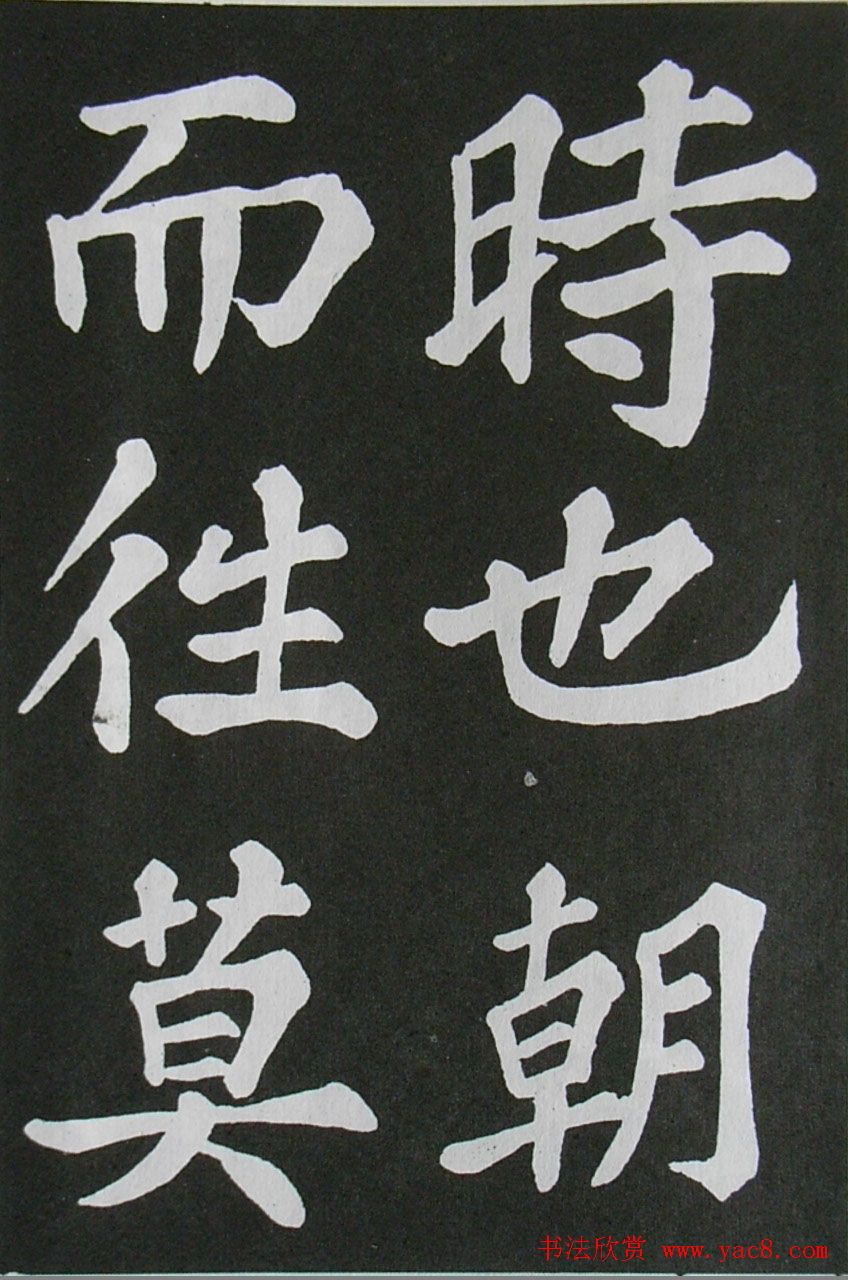 時也朝
而往莫
书法欣赏 www.yac8.com